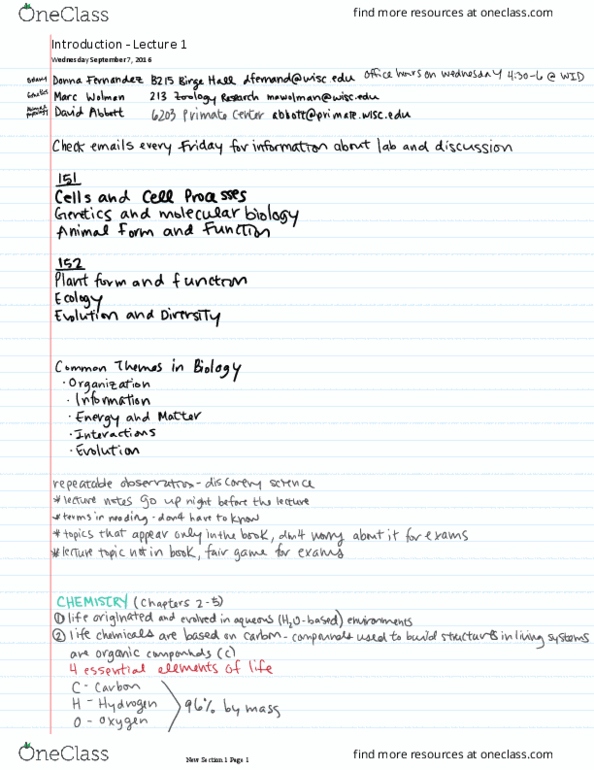 OneClass find more resources at oneclass.com
Introduction - Lecture 1
Wednesday September 7, 2016
Botany Donna Fernandez B215 Birge Hall dfernand@wisc.edu office hours on wednesday 4:30-6 @ WID
Genetics Marc Wolman 213 Zoology Research mawolman@wisc.edu
Animal Physiology David Abbott 6203 Primate Center abbott@primate.wisc.edu
Check emails every Friday for information about lab and discussion
151
Cells and Cell Processes
Genetics and molecular biology
Animal Form and Function
152
Plant form and function
Ecology
Evolution and Diversity
Common Themes in Biology
· Organization
· Information
· Energy and Matter
· Interactions
· Evolution
repeatable observation - discovery science
* lecture notes go up night before the lecture
* terms in reading - don't have to know
* topics that appear only in the book, don't worry about it for exams
* lecture topic not in book, fair game for exams
CHEMISTRY (Chapters 2-5)
① life originated and evolved in aqueous (H₂O-based) environments
② life chemicals are based on carbon - compounds used to build structures in living systems
are organic compounds (C)
4 essential elements of life
C - Carbon
H - Hydrogen 96% by mass
O - Oxygen
OneClass find more resources at oneclass.com
New Section 1 Page 1